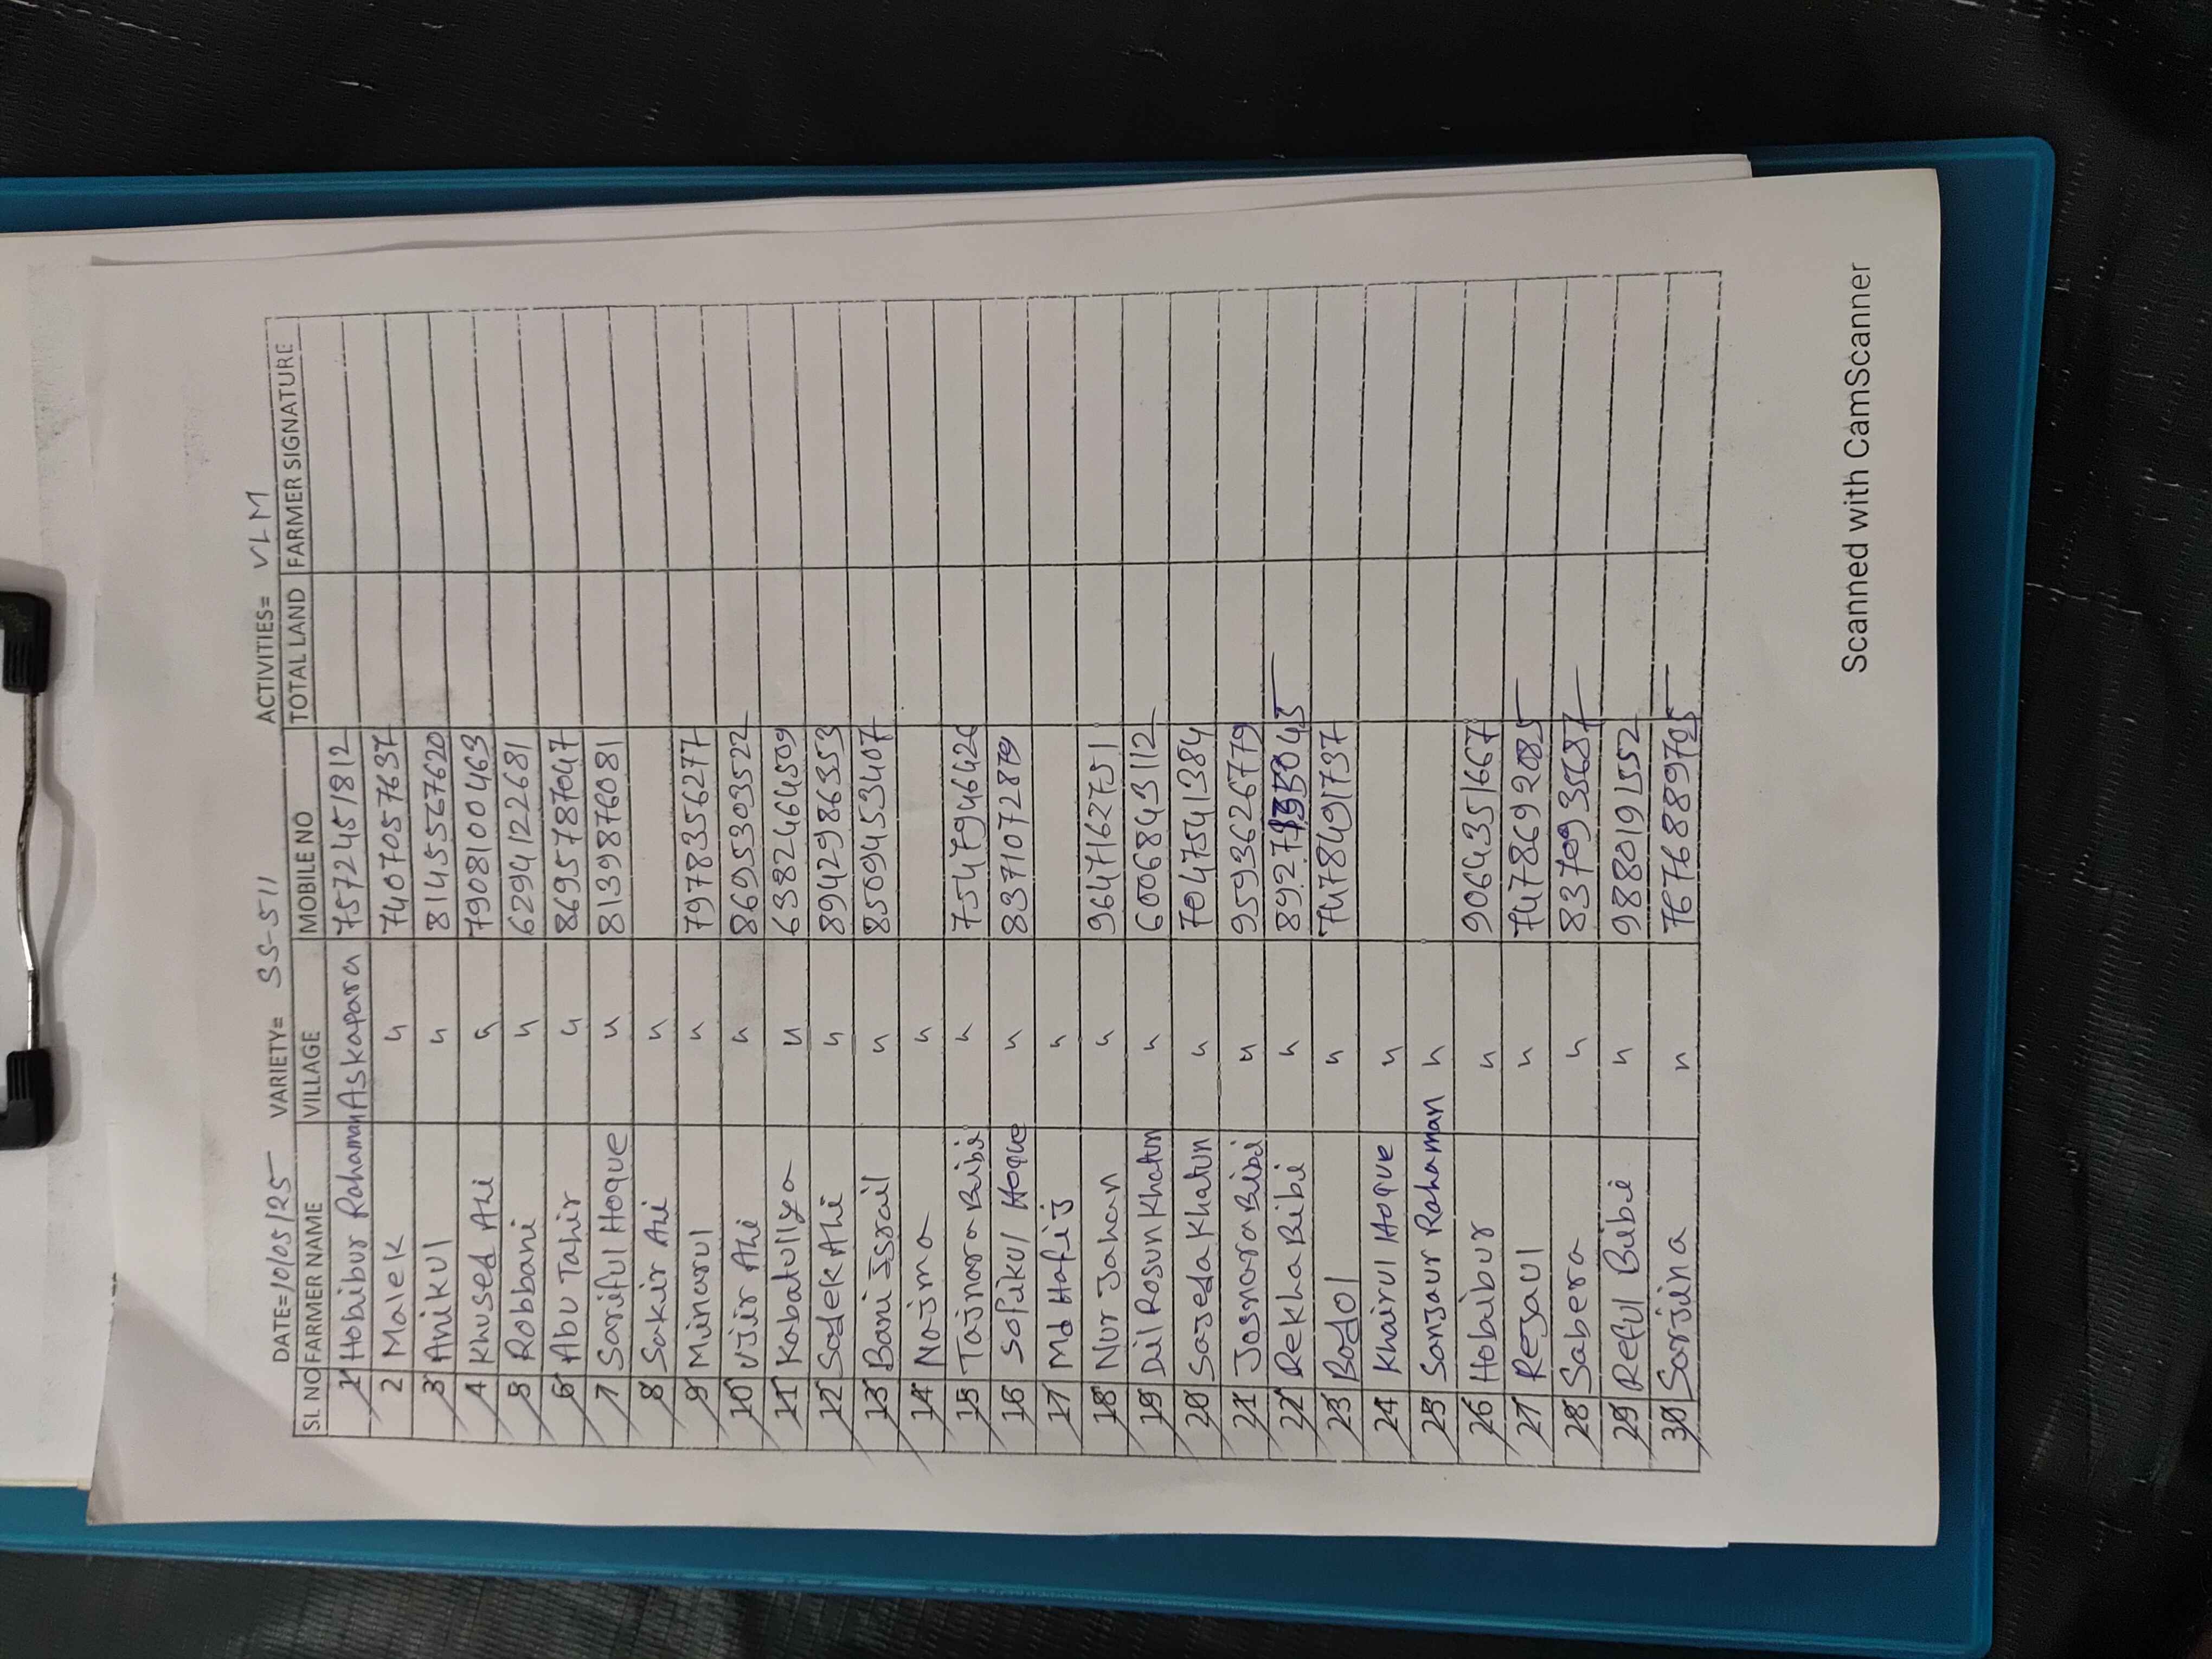 DATE=10/05/25 VARIETY= SS-511 ACTIVITIES= VLM
SL NO FARMER NAME VILLAGE MOBILE NO TOTAL LAND FARMER SIGNATURE
1 Habibur Rahaman Askapara 7572451812
2 Malek " 7407057637
3 Anikul " 8145567620
4 Khused Ali " 7908100463
5 Robbani " 6294122681
6 Abu Tahir " 8695787047
7 Sariful Hoque " 8139876081
8 Sakir Ali "
9 Minarul " 7978356277
10 Ujir Ali " 8695303522
11 Kabatullya " 6382464509
12 Sadek Ali " 8942986353
13 Bani Israil " 8509453407
14 Najma "
15 Tajnara Bibi " 7547946426
16 Sofikul Hoque " 8371072879
17 Md Hafij "
18 Nur Jahan " 9647162751
19 Dil Rosun Khatun " 6006843112
20 Sajeda Khatun " 7047541384
21 Josnara Bibi " 9593626779
22 Rekha Bibi "
23 Badol " 7478491737
24 Khairul Hoque "
25 Sanjaur Rahaman "
26 Habibur " 9064351667
27 Rejaul " 7478692085
28 Sabera " 8370935687
29 Reful Bibi " 9880191552
30 Sarjina " 7676889705
Scanned with CamScanner